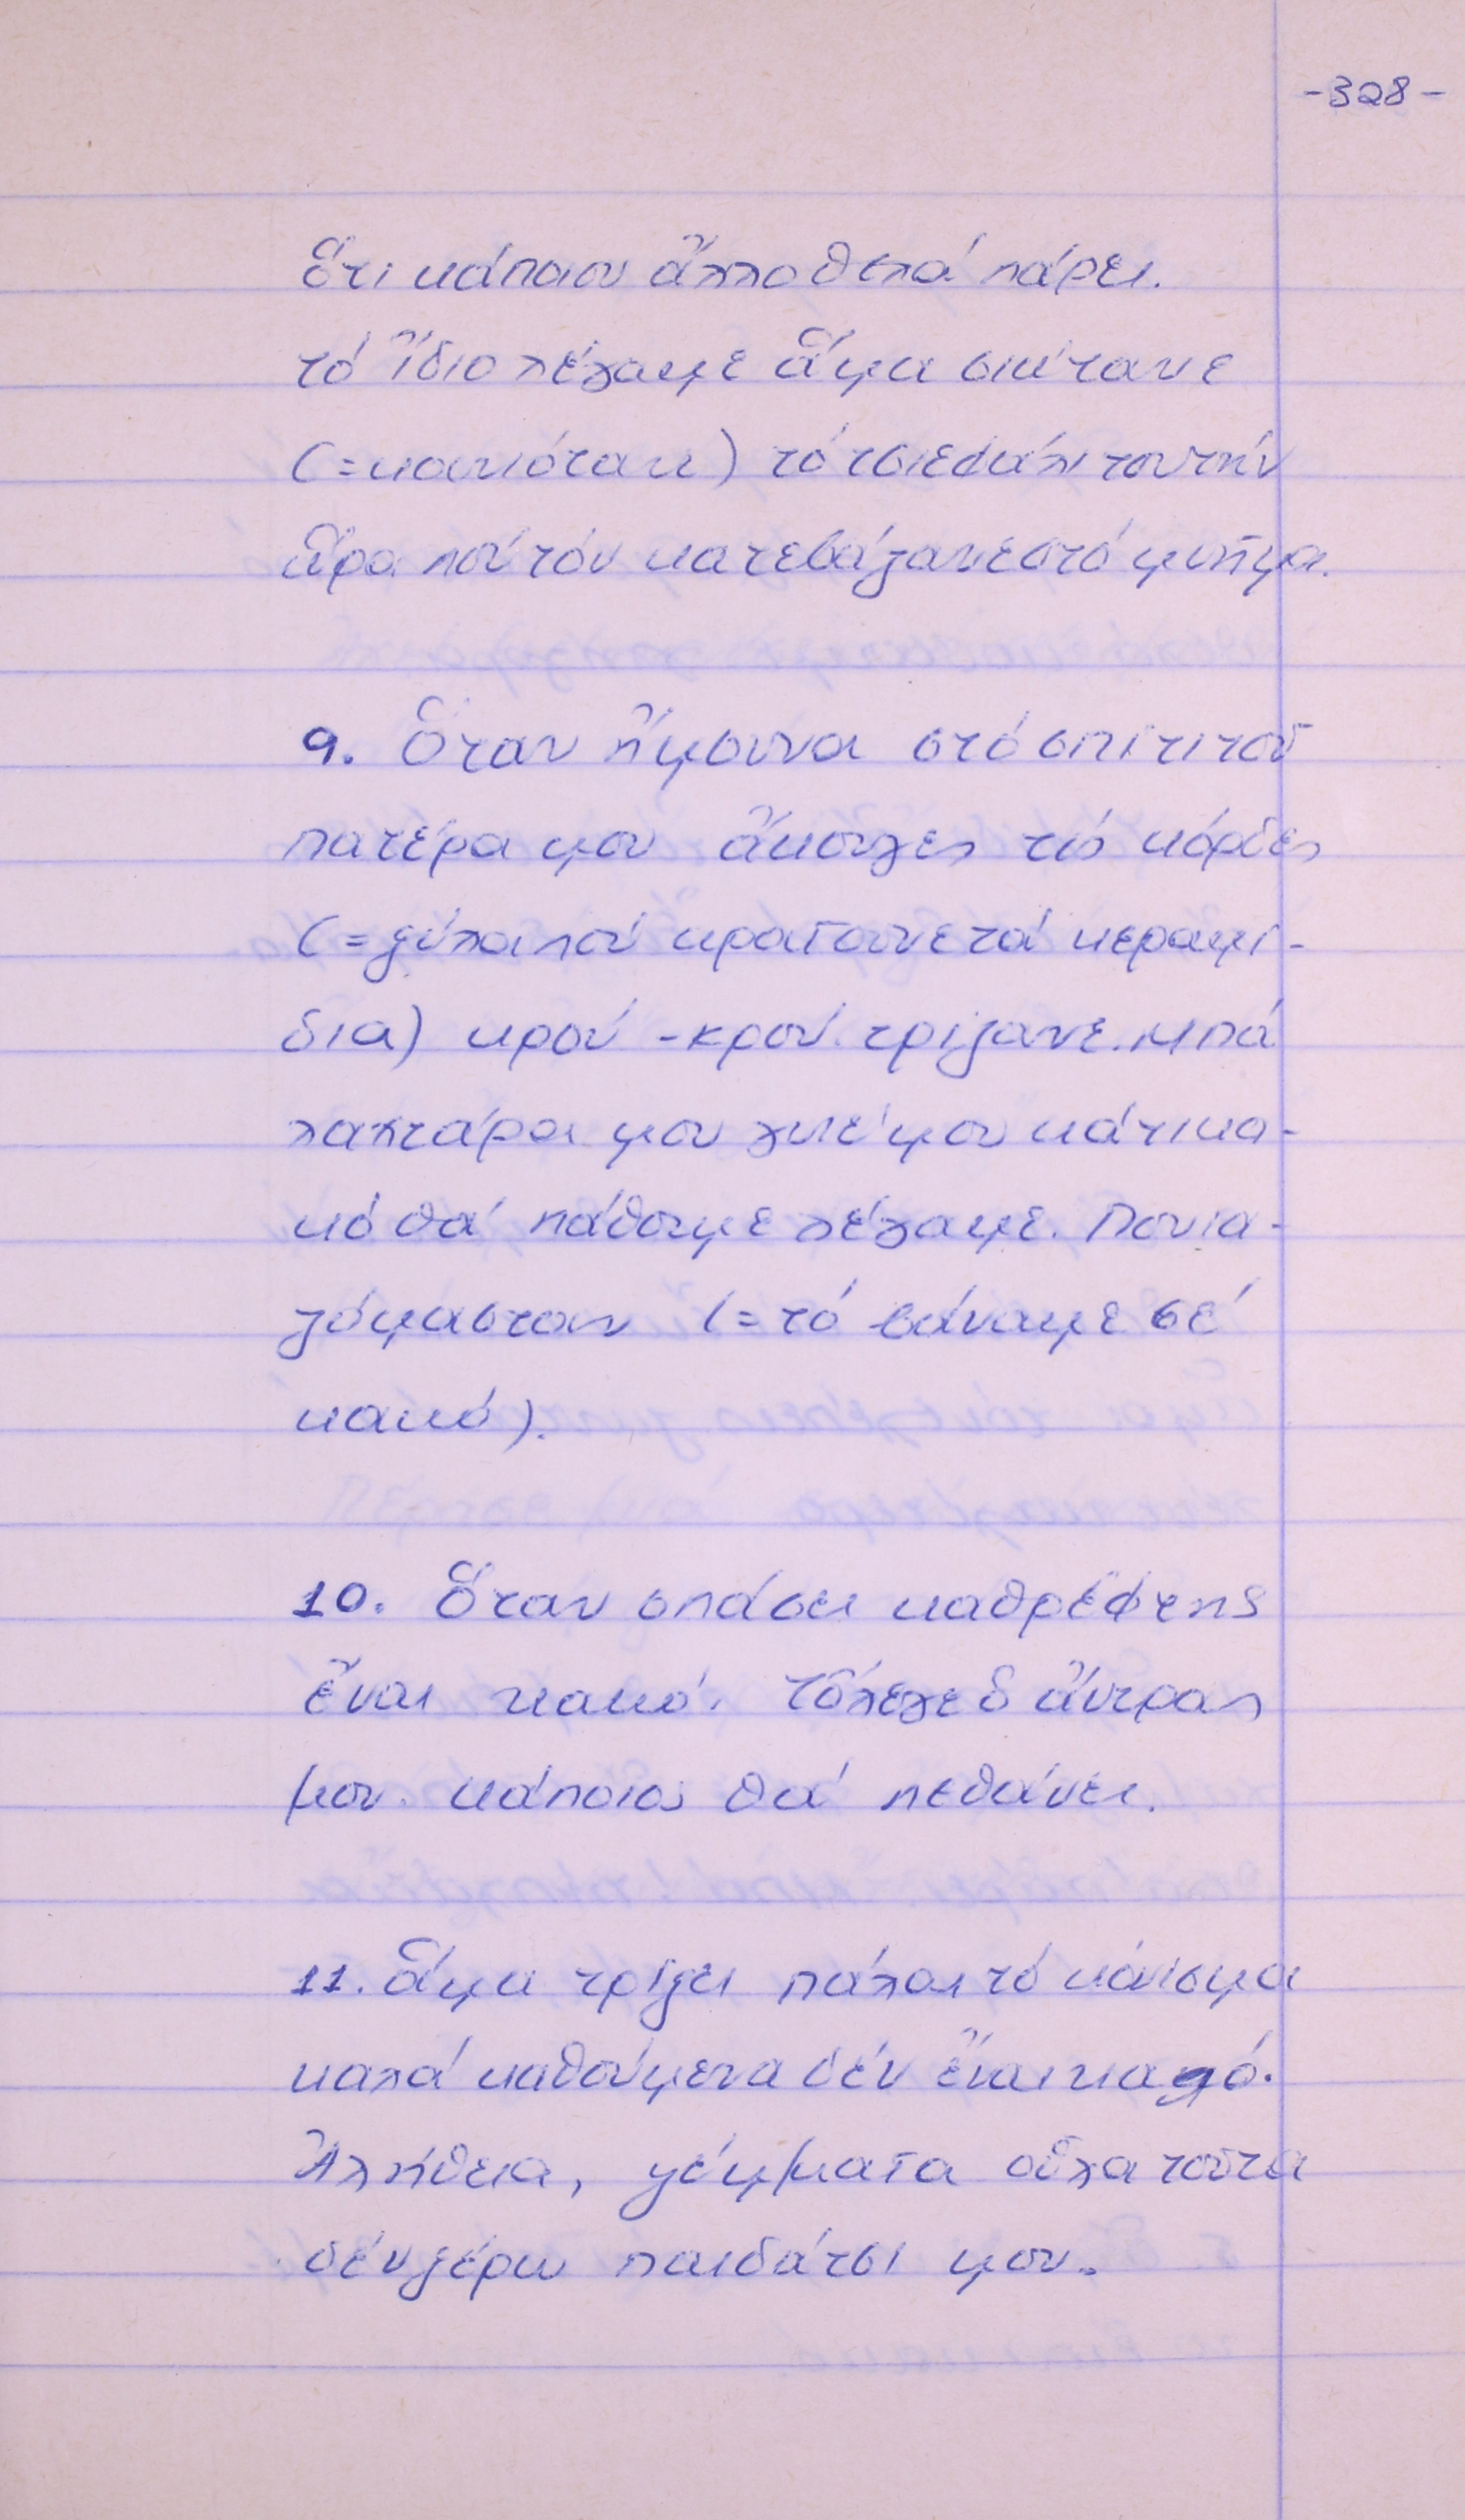 -328-
ὅτι κάποιον ἄλλο θελά πάρει.
τό ἴδιο λέγαμε ἅμα σκιύτανε
(=κουνιότανε) τό τσιεφάλι του τήν
ὥρα πού τόν κατεβάζανε στό μνῆμα.
9. Ὅταν ἤμουνα στό σπίτι τοῦ
πατέρα μου ἄκουγες τίς κόρδες
(=ξύλα πού κρατοῦνε τά κεραμί-
δια) κρού -κρού τρίζανε. Μπά
λαχτάρα μου γυιέ μου κάτι κα-
κό θά πάθουμε λέγαμε. Πονια-
ζόμαστον (=τό βάναμε σέ
κακό).
10. Ὅταν σπάσει καθρέφτης
ἔναι κακό. Τὄλεγε ὁ ἄντρας
μου. κάποιος θά πεθάνει.
11. ἅμα τρίζει πάλαι τό κάνισμα
καλά καθούμενα δέν ἔναι καλό.
Ἀλήθεια, ψέμματα οὗλα τοῦτα
δέν ξέρω παιδάτσι μου.